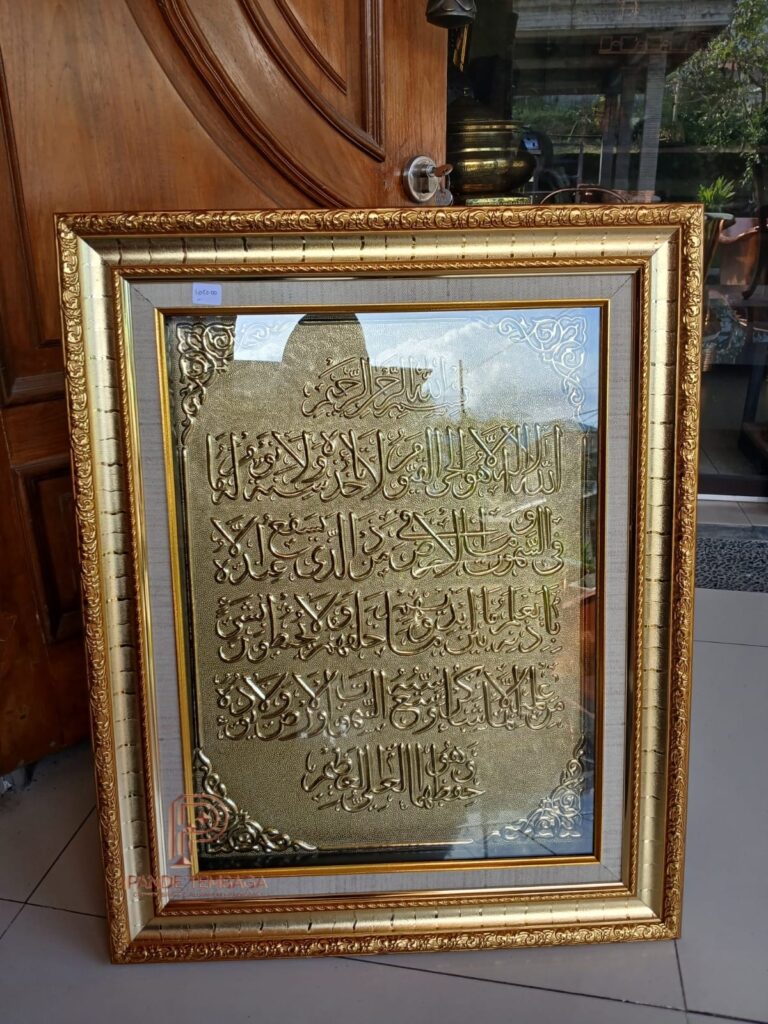 بسم الله الرحمن الرحيم
الله لا إله إلا هو الحي القيوم لا تأخذه سنة ولا نوم له ما
في السموت وما في الأرض من ذا الذي يشفع عنده إلا
بإذنه يعلم ما بين أيديهم وما خلفهم ولا يحيطون بشيء
من علمه إلا بما شاء وسع كرسيه السموت والأرض ولا يؤده
حفظهما وهو العلي العظيم
PANDE TEMBAGA